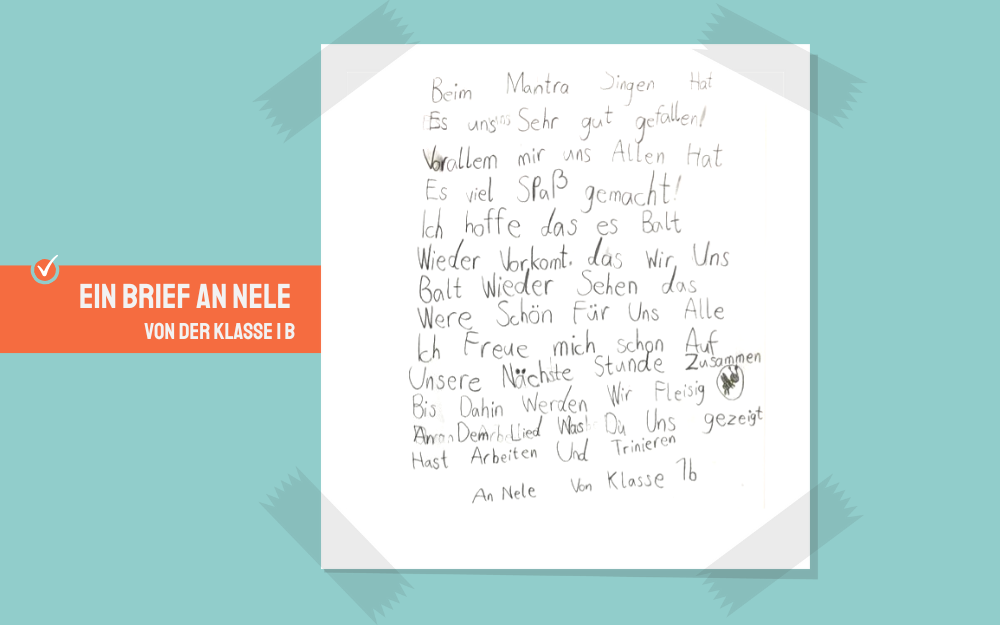 EIN BRIEF AN NELE
VON DER KLASSE 1 B
Beim Mantra Singen Hat
Es uns Sehr gut gefallen!
Vorallem mir uns Allen Hat
Es viel Spaß gemacht!
Ich hoffe das es Balt
Wieder Vorkomt. das Wir Uns
Balt Wieder Sehen das
Were Schön Für Uns Alle
Ich Freue mich schon Auf
Unsere Nächste Stunde Zusammen
Bis Dahin Werden Wir Fleisig
An Dem Lied Was Du Uns gezeigt
Hast Arbeiten Und Trinieren
An Nele Von Klasse 1b